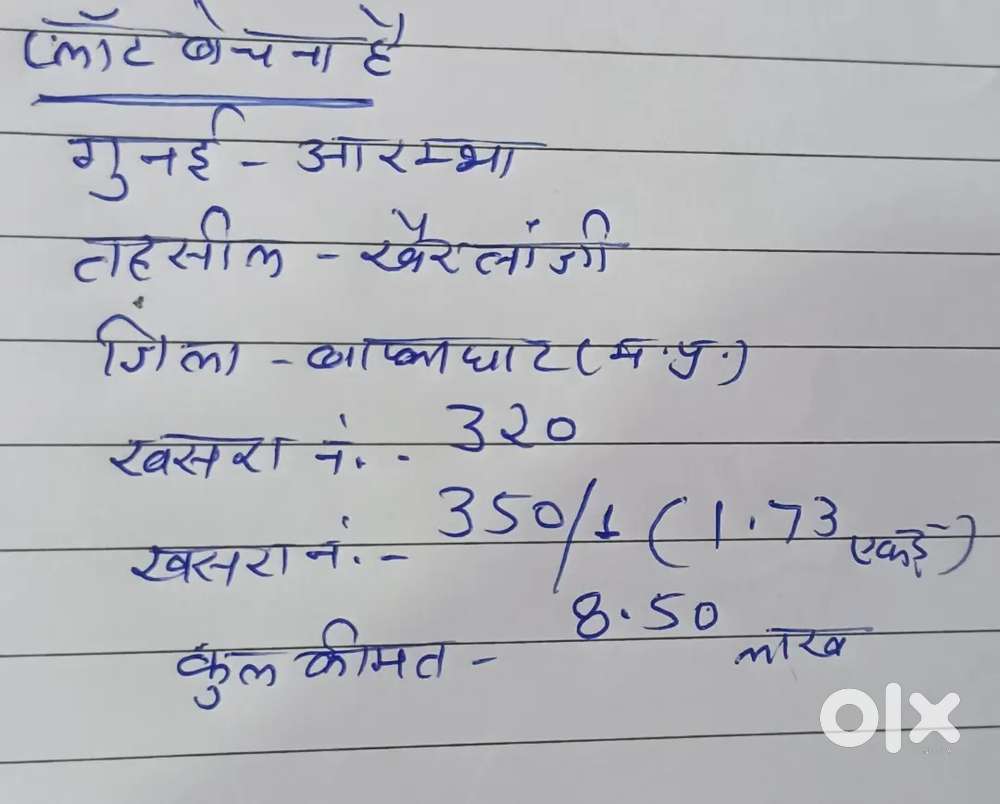 प्लॉट बेचना है
गुनई - आरम्भा
तहसील - खैरलांजी
जिला - बालाघाट (म.प्र.)
खसरा नं. - 320
खसरा नं. - 350/1 (1.73 एकड़)
कुल कीमत - 8.50 लाख
olx